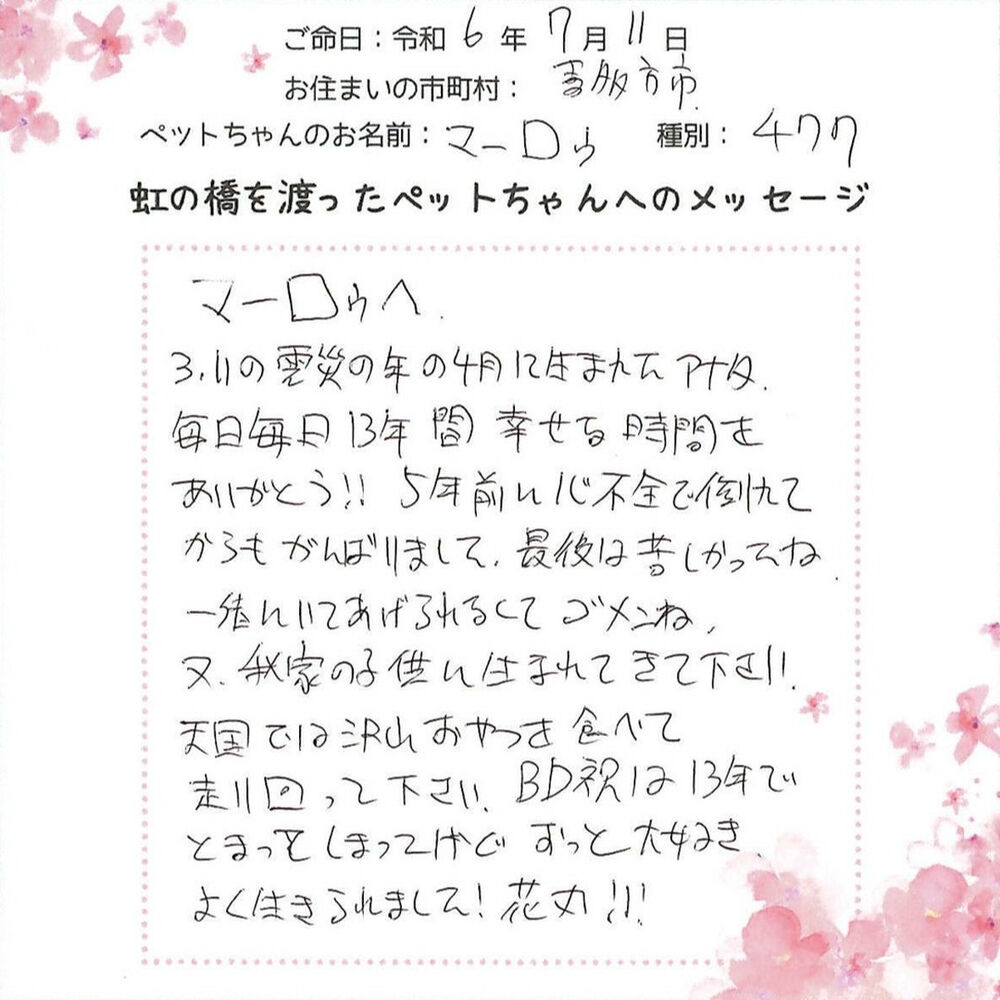 ご命日：令和 6 年 7 月 11 日
お住まいの市町村： 喜多方市
ペットちゃんのお名前：マーロゥ 種別：
虹の橋を渡ったペットちゃんへのメッセージ
マーロゥへ.
3.11の震災の年の4月に生まれたアナタ.
毎日毎日13年間 幸せな時間を
ありがとう!! 5年前に心不全で倒れて
からもがんばりました. 最後は苦しかったね.
一緒にいてあげられなくてゴメンね,
又、我家の子供に生まれてきて下さい.
天国では沢山おやつを食べて
走り回って下さい. BD祝は13年で
とまってしまったけど ずっと大好き.
よく生きられました! 花丸!!!